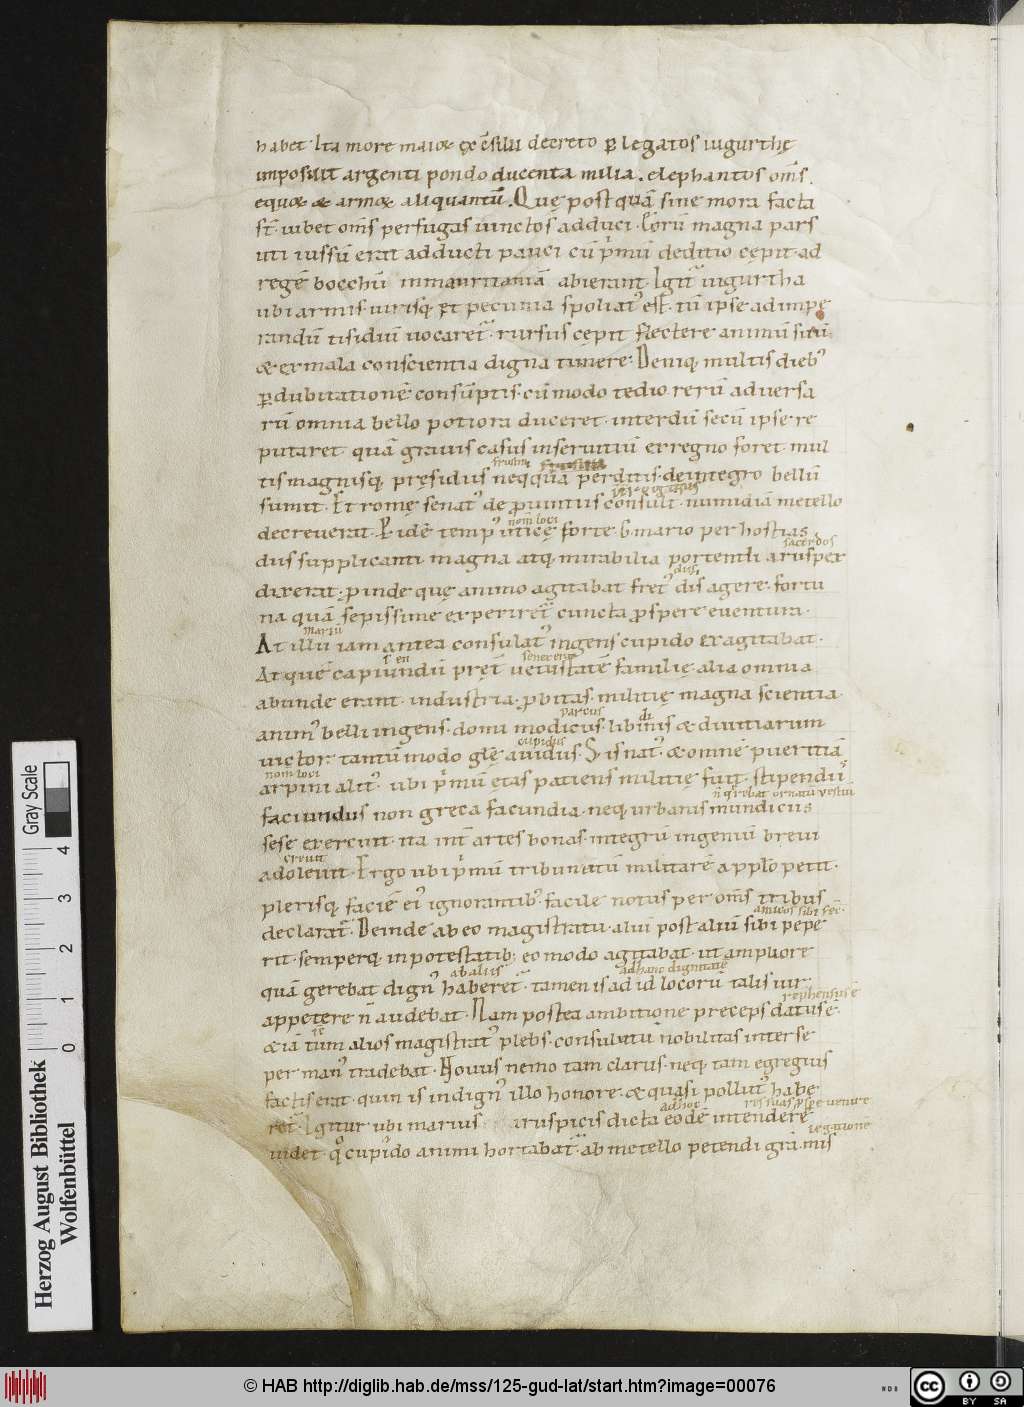 habet. Ita more maioꝝ ex ēsilii decreto ꝑ legatos iugurthę
imposuit argenti pondo ducenta milia. elephantos om̅s.
equoꝝ & armoꝝ aliquantū. Quę postquā sine mora facta
st̅. iubet om̅s perfugas uinctos adduci. Eorū magna pars
uti iussū erat adducti. pauci cū p̍mū deditio cępit. ad
regē bocchū inmauritaniā abierant. Igit̃ iugurtha
ubi armis. uirisq; et pecunia spoliat᾿ est. cū ipse ad impe
randū tisidiū uocaret̃. rursus cępit flectere animū suū
& ex mala conscientia digna timere. Deniq; multis dieb᾿
ꝑ dubitationē consūptis. cū modo tedio rerū aduersa
rū omnia bello potiora duceret. interdū secū ipse re
putaret. quā grauis casus inseruitiū exregno foret. mul
frustra
tis magnisq; pręsidiis neqquā perditis. deintegro bellū
sumit. Et romę senat᾿ de prouintiis consult. numidiā metello
nom̅ loci
decreuerat. P idē temp᾿ uticę forte G. mario per hostias
sacerdos
diis supplicanti magna atq; mirabilia portendi aruspex
diis
dixerat. pinde quę animo agitabat fret᾿ dis agere. fortu
nā quā sepissime experiret̃ cuncta prospere euentura.
mariū
At illū iam antea consulat᾿ ingens cupido exagitabat.
At quē capiundū pręt̃ uetustatē familię alia omnia
abunde erant. industria. probitas. militię magna scientia.
parcus
anim᾿ belli ingens. domi modicus. libinis & diuitiarum
cupidus
uictor. tantū modo glę auidus. S; is nat᾿. & omnē pueritiā
nom̅ loci
arpini alit᾿. ubi p̍mū ętas patiens militię fuit. stipendiis
n̅ q̨rebat ornatū vestiū
faciundis non greca facundia. neq; urbanis mundiciis
sese exercuit. ita int̃ artes bonas. integrū ingeniū breui
creuit
adoleuit. Ergo ubi p̍mū tribunatū militarē a pplo petit.
plerisq; faciē ei᾿ ignorantib᾿. facile notus per om̅s tribus
declarat̃. Deinde ab eo magistratu. aliū post aliū sibi pepe
rit. semperq; in potestatib; eo modo agitabat. ut ampliore
ab aliis ad hanc dignitatē
quā gerebat dign᾿ haberet̃. tamen is ad id locorū talis uir
rephensus ē
appetere n̅ audebat. Nam postea ambitione preceps datus ē.
& iā tum alios magistrat᾿ plebs. consulatū nobilitas inter se
per man᾿ tradebat. Nouus nemo tam clarus. neq; tam egregiis
factis erat. quin is indign᾿ illo honore. & quasi pollut᾿ habe
ad hoc res suas p̱spe venire
ret̃. Igitur ubi marius aruspicis dicta eodē intendere
legationē
uidet. q̊ cupido animi hortabat̃. ab metello petendi grā. mis
Gray Scale
0 1 2 3 4
Herzog August Bibliothek
Wolfenbüttel
© HAB http://diglib.hab.de/mss/125-gud-lat/start.htm?image=00076
cc BY SA